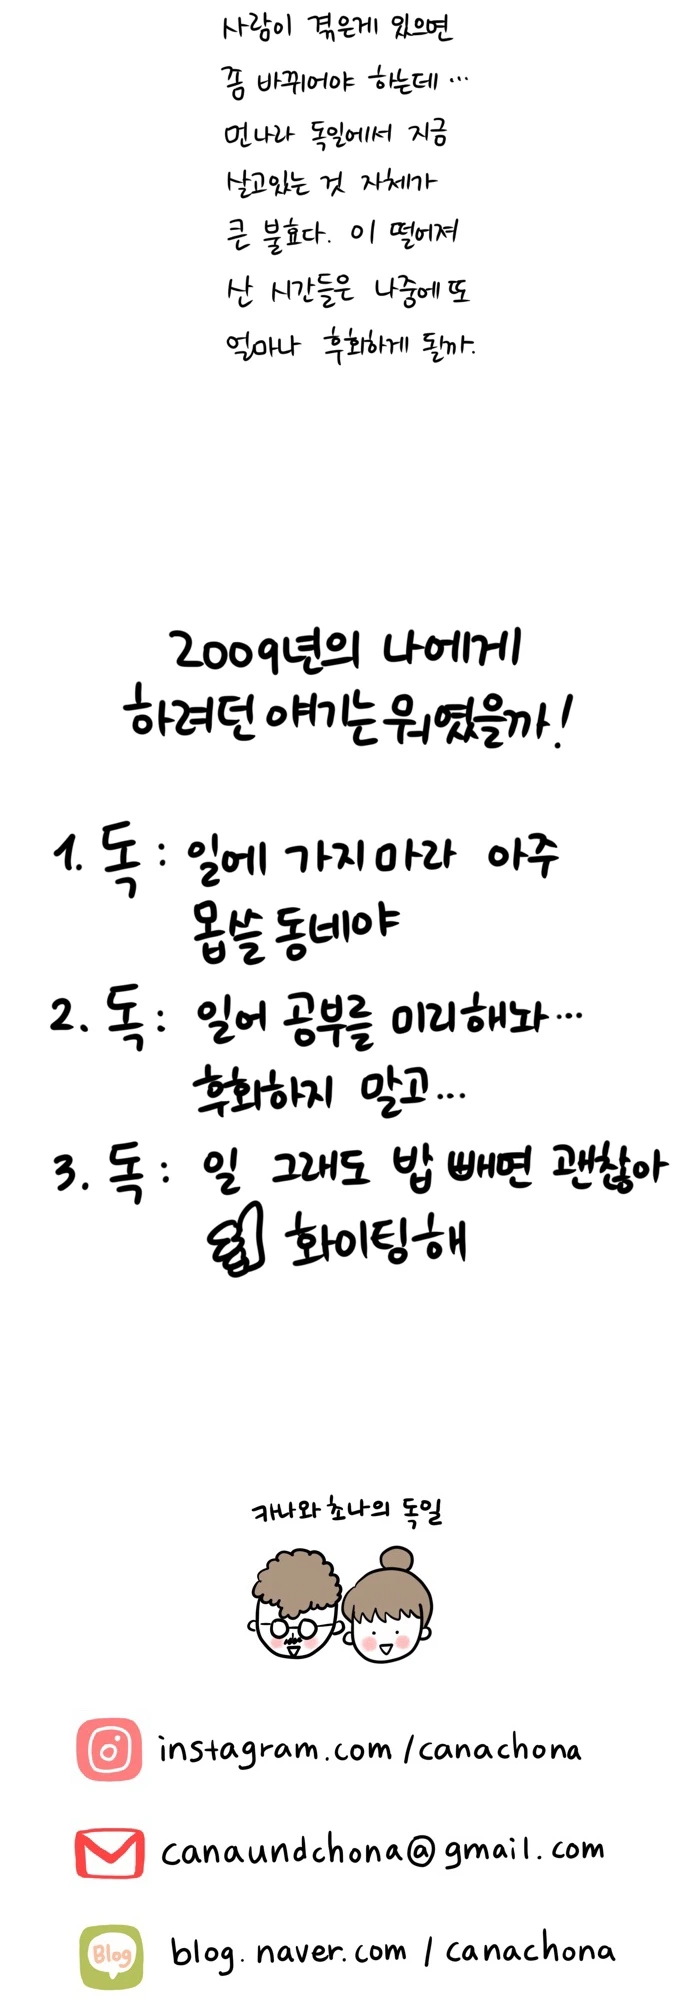 사람이 겪은게 있으면
좀 바뀌어야 하는데...
먼나라 독일에서 지금
살고있는 것 자체가
큰 불효다. 이 떨어져
산 시간들은 나중에 또
얼마나 후회하게 될까.
2009년의 나에게
하려던 얘기는 뭐였을까!
1. 독 : 일에 가지마라 아주
몹쓸 동네야
2. 독 : 일어 공부를 미리해놔...
후회하지 말고...
3. 독 : 일 그래도 밥 빼면 괜찮아
화이팅해
카나와 초나의 독일
instagram.com /canachona
canaundchona@gmail.com
Blog
blog.naver.com / canachona